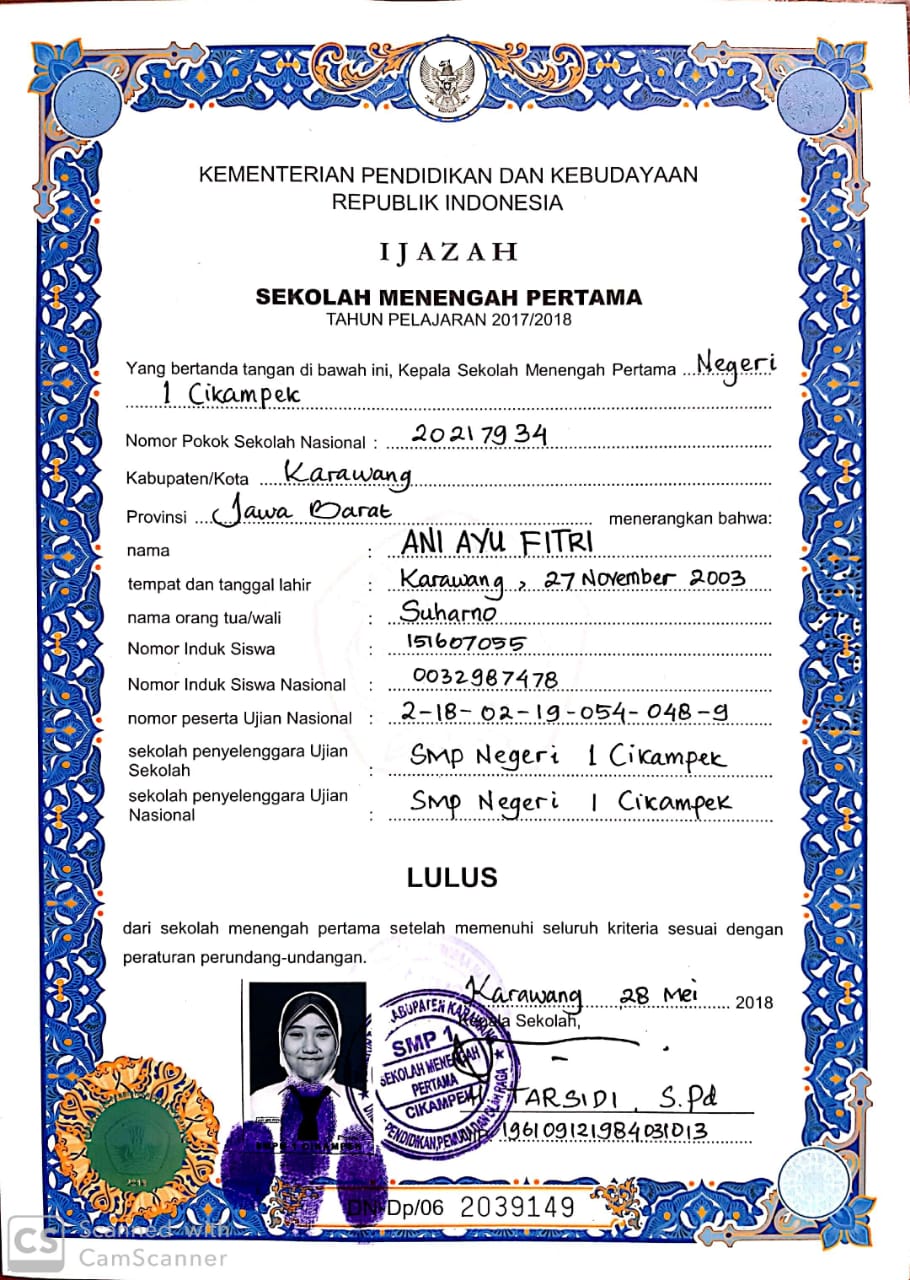 KEMENTERIAN PENDIDIKAN DAN KEBUDAYAAN
REPUBLIK INDONESIA
IJAZAH
SEKOLAH MENENGAH PERTAMA
TAHUN PELAJARAN 2017/2018
Yang bertanda tangan di bawah ini, Kepala Sekolah Menengah Pertama Negeri
1 Cikampek
Nomor Pokok Sekolah Nasional : 20217934
Kabupaten/Kota Karawang
Provinsi Jawa Barat menerangkan bahwa:
nama : ANI AYU FITRI
tempat dan tanggal lahir : Karawang, 27 November 2003
nama orang tua/wali : Suharno
Nomor Induk Siswa : 151607055
Nomor Induk Siswa Nasional : 0032987478
nomor peserta Ujian Nasional : 2-18-02-19-054-048-9
sekolah penyelenggara Ujian
Sekolah : SMP Negeri 1 Cikampek
sekolah penyelenggara Ujian
Nasional : SMP Negeri 1 Cikampek
LULUS
dari sekolah menengah pertama setelah memenuhi seluruh kriteria sesuai dengan
peraturan perundang-undangan.
Karawang 28 Mei 2018
Kepala Sekolah,
KABUPATEN KARAWANG
SMP 1
SEKOLAH MENENGAH
PERTAMA
CIKAMPEK
PENDIDIKAN, PEMUDA DAN OLAH RAGA
TARSIDI, S.Pd
196109121984031013
SMPN 1 CIKAMPEK
DN-Dp/06 2039149
CS Scanned with
CamScanner